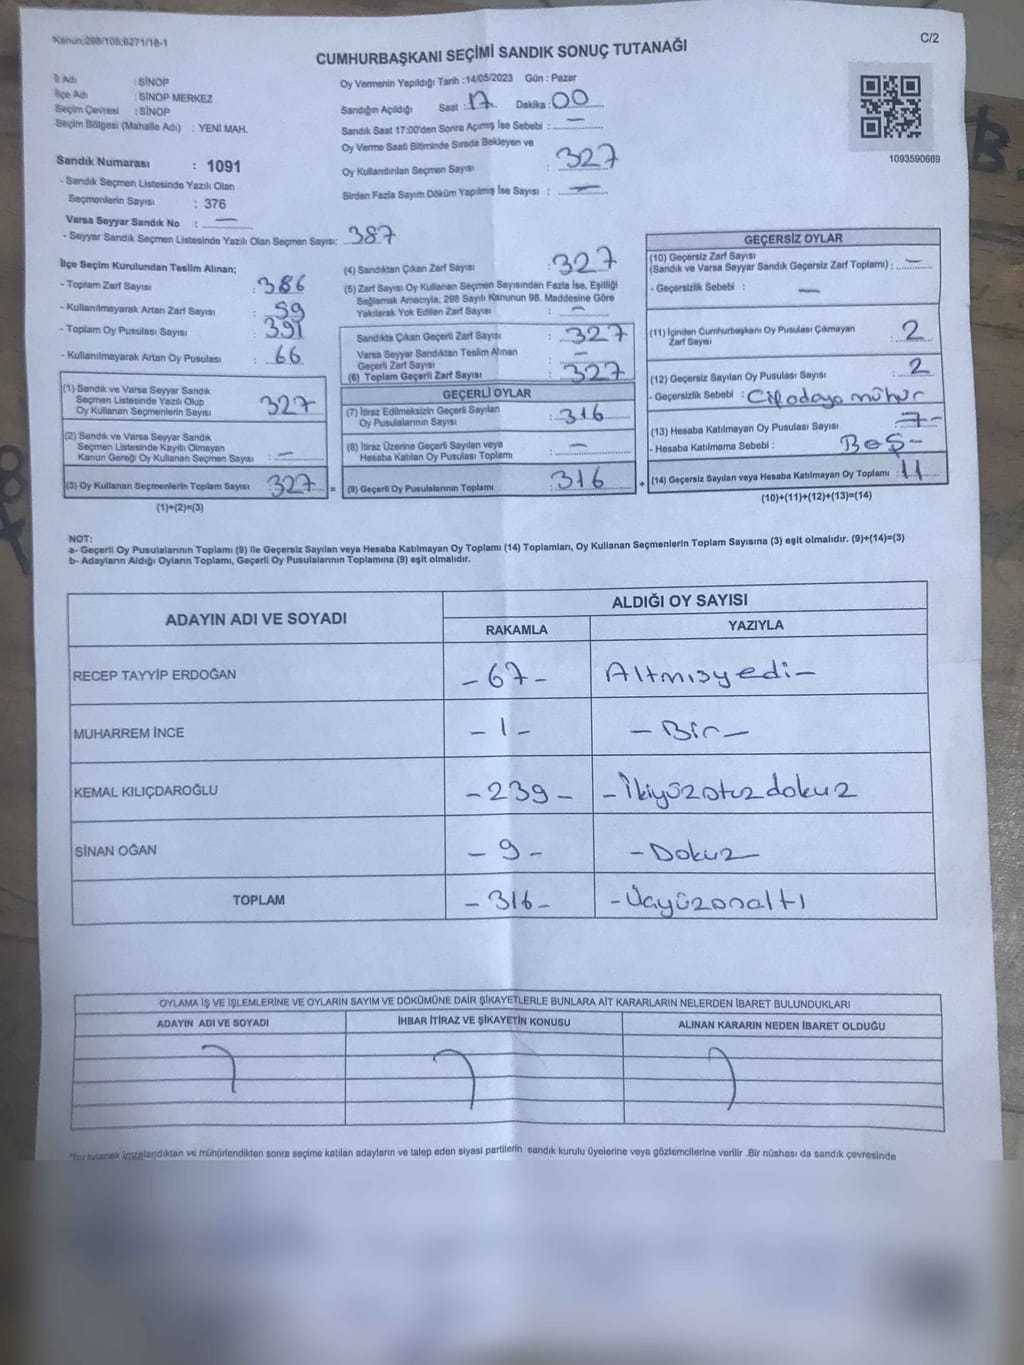 Kanun;298/105;6271/18-1
C/2
CUMHURBAŞKANI SEÇİMİ SANDIK SONUÇ TUTANAĞI
İl Adı : SİNOP
İlçe Adı : SİNOP MERKEZ
Seçim Çevresi : SİNOP
Seçim Bölgesi (Mahalle Adı) : YENİ MAH.
Sandık Numarası : 1091
- Sandık Seçmen Listesinde Yazılı Olan
Seçmenlerin Sayısı : 376
Varsa Seyyar Sandık No : —
- Seyyar Sandık Seçmen Listesinde Yazılı Olan Seçmen Sayısı: 387
Oy Vermenin Yapıldığı Tarih :14/05/2023 Gün : Pazar
Sandığın Açıldığı Saat : 17 Dakika : 00
Sandık Saat 17:00'den Sonra Açımış İse Sebebi : —
Oy Verme Saati Bitiminde Sırada Bekleyen ve
Oy Kullandırılan Seçmen Sayısı : 327
Birden Fazla Sayım Döküm Yapılmış İse Sayısı : —
1093590669
İlçe Seçim Kurulundan Teslim Alınan;
- Toplam Zarf Sayısı : 386
- Kullanılmayarak Artan Zarf Sayısı : 59
- Toplam Oy Pusulası Sayısı : 391
- Kullanılmayarak Artan Oy Pusulası : 66
(1) Sandık ve Varsa Seyyar Sandık
Seçmen Listesinde Yazılı Olup
Oy Kullanan Seçmenlerin Sayısı : 327
(2) Sandık ve Varsa Seyyar Sandık
Seçmen Listesinde Kayıtlı Olmayan
Kanun Gereği Oy Kullanan Seçmen Sayısı : —
(3) Oy Kullanan Seçmenlerin Toplam Sayısı : 327 =
(1)+(2)=(3)
(4) Sandıktan Çıkan Zarf Sayısı : 327
(5) Zarf Sayısı Oy Kullanan Seçmen Sayısından Fazla İse, Eşitliği
Sağlamak Amacıyla; 298 Sayılı Kanunun 98. Maddesine Göre
Yakılarak Yok Edilen Zarf Sayısı : —
Sandıkta Çıkan Geçerli Zarf Sayısı : 327
Varsa Seyyar Sandıktan Teslim Alınan
Geçerli Zarf Sayısı : —
(6) Toplam Geçerli Zarf Sayısı : 327
GEÇERLİ OYLAR
(7) İtiraz Edilmeksizin Geçerli Sayılan
Oy Pusulalarının Sayısı : 316
(8) İtiraz Üzerine Geçerli Sayılan veya
Hesaba Katılan Oy Pusulası Toplamı : —
(9) Geçerli Oy Pusulalarının Toplamı : 316 +
GEÇERSİZ OYLAR
(10) Geçersiz Zarf Sayısı
(Sandık ve Varsa Seyyar Sandık Geçersiz Zarf Toplamı) : —
- Geçersizlik Sebebi : —
(11) İçinden Cumhurbaşkanı Oy Pusulası Çıkmayan
Zarf Sayısı : 2
(12) Geçersiz Sayılan Oy Pusulası Sayısı : 2
- Geçersizlik Sebebi : mühür
(13) Hesaba Katılmayan Oy Pusulası Sayısı : 7-
- Hesaba Katılmama Sebebi : BOŞ-
(14) Geçersiz Sayılan veya Hesaba Katılmayan Oy Toplamı : 11
(10)+(11)+(12)+(13)=(14)
NOT:
a- Geçerli Oy Pusulalarının Toplamı (9) ile Geçersiz Sayılan veya Hesaba Katılmayan Oy Toplamı (14) Toplamları, Oy Kullanan Seçmenlerin Toplam Sayısına (3) eşit olmalıdır. (9)+(14)=(3)
b- Adayların Aldığı Oyların Toplamı, Geçerli Oy Pusulalarının Toplamına (9) eşit olmalıdır.
ADAYIN ADI VE SOYADI
ALDIĞI OY SAYISI
RAKAMLA YAZIYLA
RECEP TAYYİP ERDOĞAN -67- Altmışyedi-
MUHARREM İNCE -1- -Bir-
KEMAL KILIÇDAROĞLU -239- -İkiyüzotuzdokuz
SİNAN OĞAN -9- -Dokuz
TOPLAM -316- -Üçyüzonaltı
OYLAMA İŞ VE İŞLEMLERİNE VE OYLARIN SAYIM VE DÖKÜMÜNE DAİR ŞİKAYETLERLE BUNLARA AİT KARARLARIN NELERDEN İBARET BULUNDUKLARI
ADAYIN ADI VE SOYADI İHBAR İTİRAZ VE ŞİKAYETİN KONUSU ALINAN KARARIN NEDEN İBARET OLDUĞU
*Bu tutanak imzalandıktan ve mühürlendikten sonra seçime katılan adayların ve talep eden siyasi partilerin sandık kurulu üyelerine veya gözlemcilerine verilir .Bir nüshası da sandık çevresinde